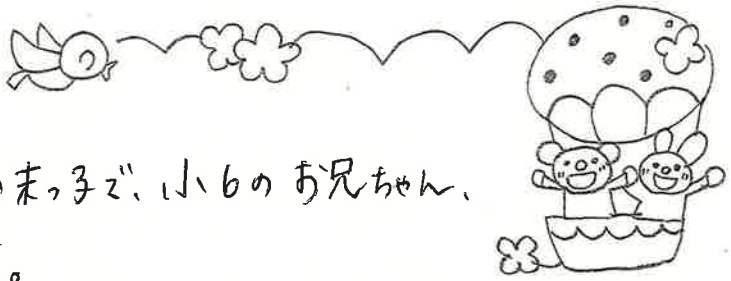 末っ子で、小6のお兄ちゃん、
。